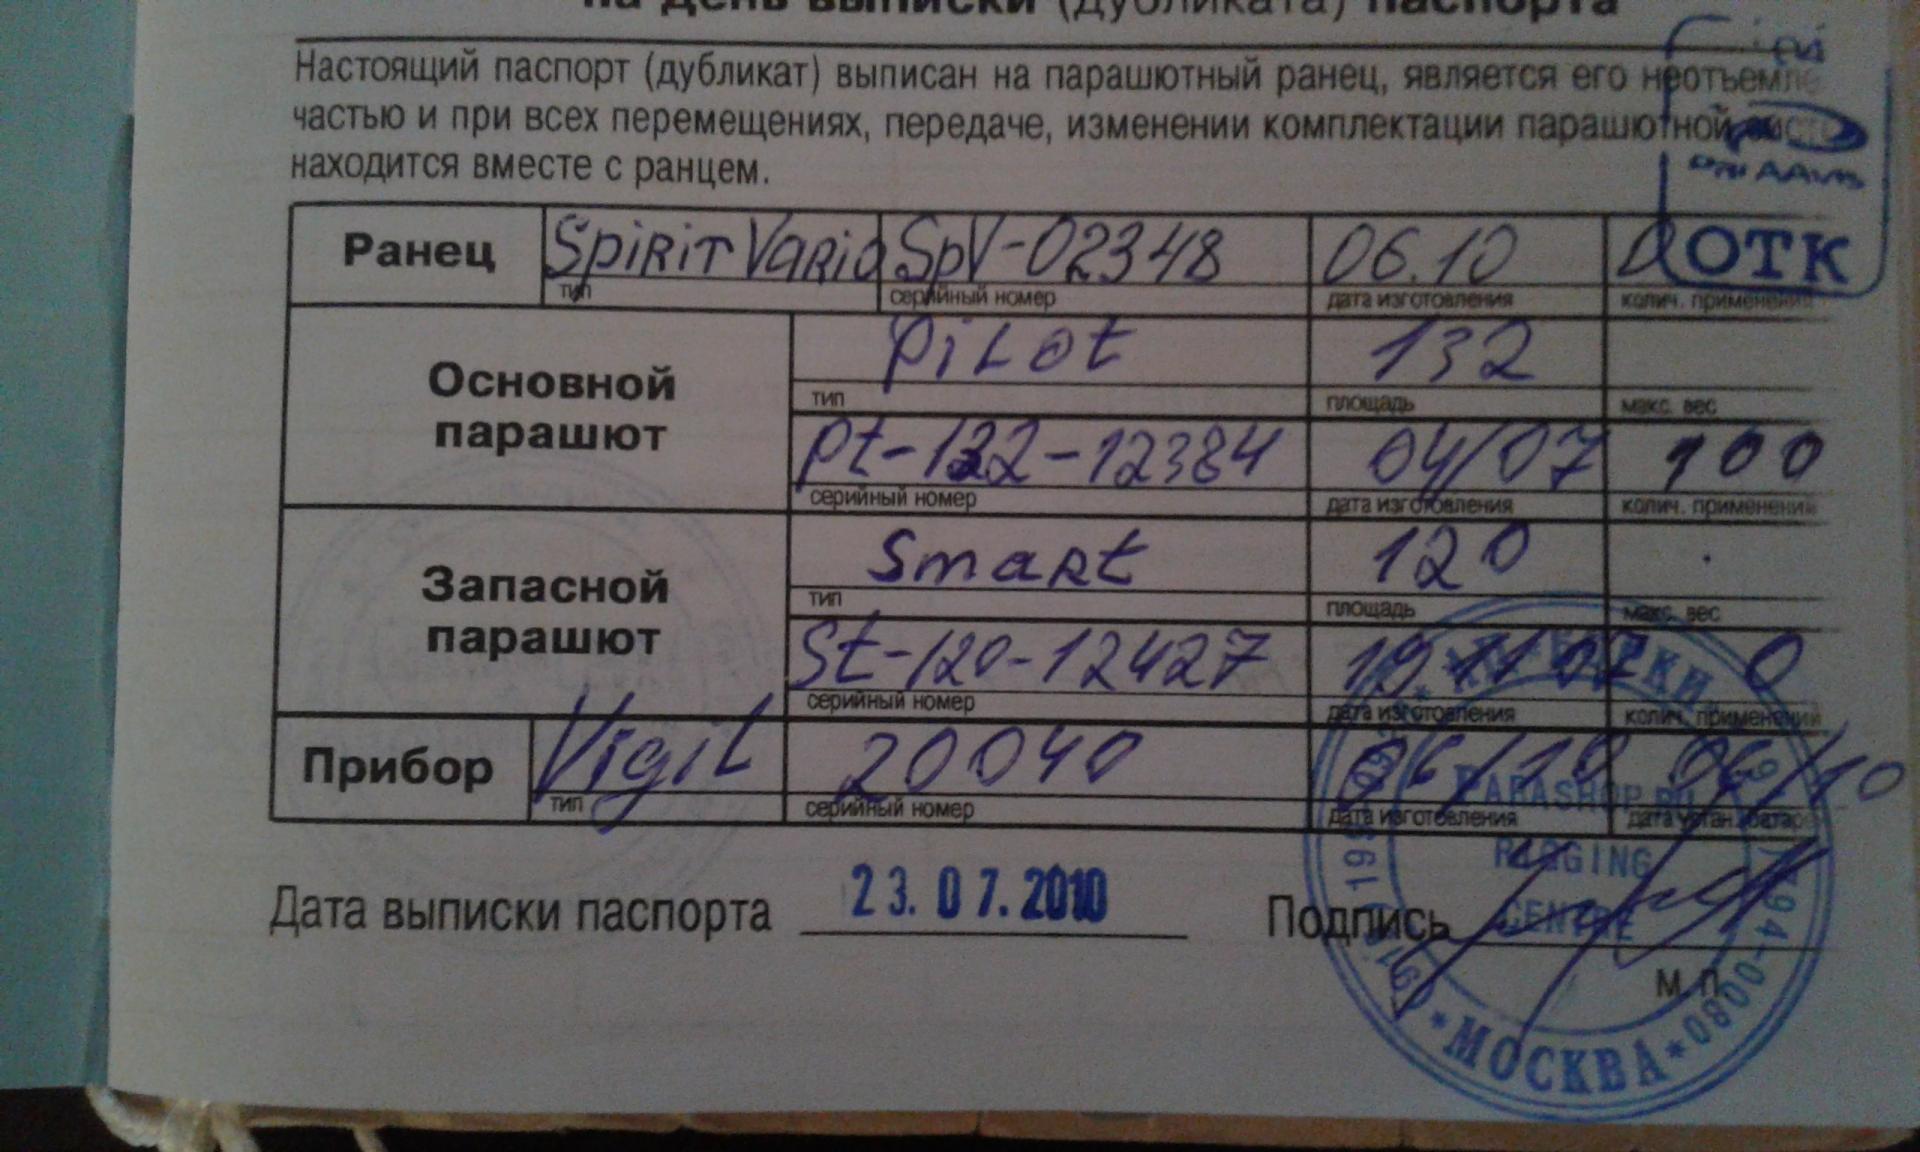 на день выписки (дубликата) паспорта
Настоящий паспорт (дубликат) выписан на парашютный ранец, является его неотъемле
частью и при всех перемещениях, передаче, изменении комплектации парашютной систе
находится вместе с ранцем.
Ранец Spirit Vario SpV-02348 06.10 0
тип серийный номер дата изготовления колич. применений
ОТК
Основной парашют
Pilot 132
тип площадь макс. вес
Pt-132-12384 04/07 100
серийный номер дата изготовления колич. применений
Запасной парашют
Smart 120
тип площадь макс. вес
St-120-12427 19.11.07 0
серийный номер дата изготовления колич. применений
Прибор Vigil 20040 06/10 06/10
тип серийный номер дата изготовления дата устан. батаре
Дата выписки паспорта 23.07.2010 Подпись
М. П.
PARASHOP.RU
RIGGING
CENTRE
*МОСКВА*